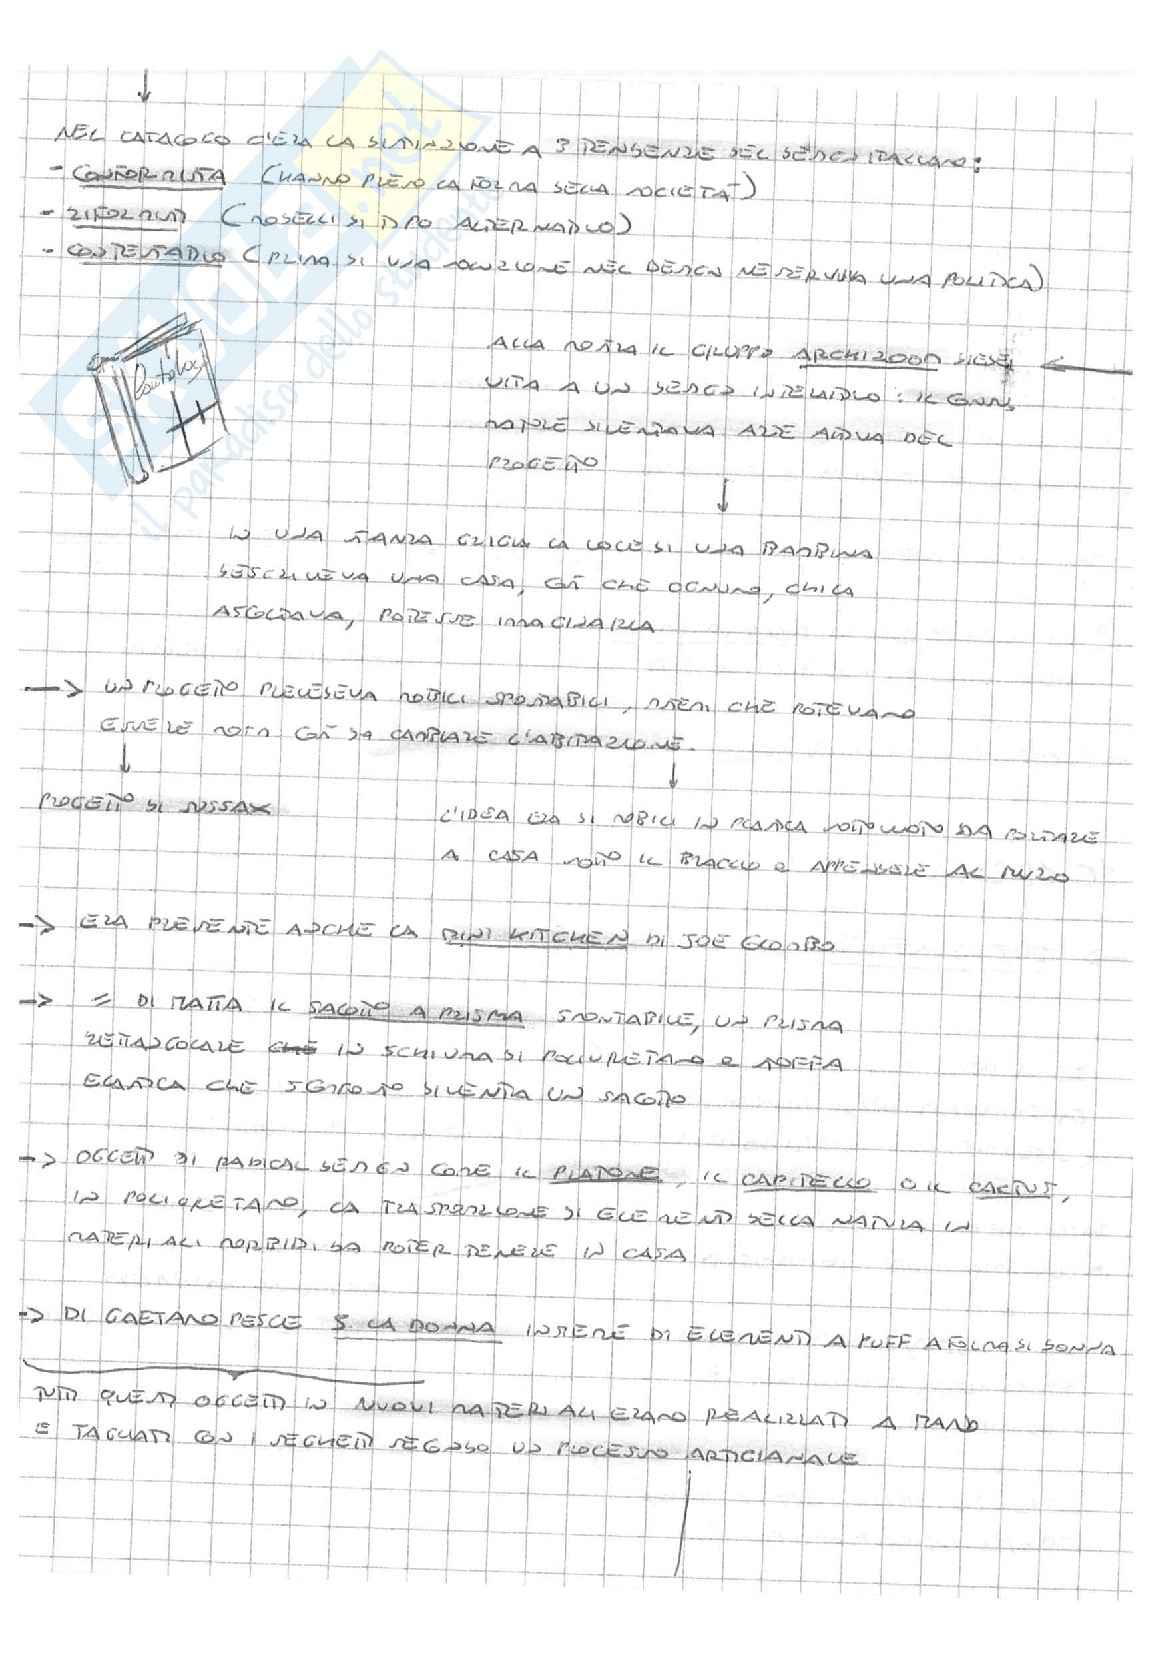 NEL CATALOGO C'ERA LA DISTINZIONE A 3 TENDENZE DEL DESIGN ITALIANO:
- CONFORMISTA (HANNO PRESO LA FORMA DELLA SOCIETÀ)
- RIFORMISTI (MODELLI DI TIPO ALTERNATIVO)
- CONTESTATIVO (PRIMA DI UNA SOLUZIONE NEL DESIGN NE SERVIVA UNA POLITICA)
Catalogo
ALLA MOSTRA IL GRUPPO ARCHIZOOM DIEDE
VITA A UN DESIGN INTERATTIVO: IL
DIVENTAVA PARTE ATTIVA DEL
PROGETTO
IN UNA STANZA GRIGIA LA VOCE DI UNA BAMBINA
DESCRIVEVA UNA CASA, COSÌ CHE OGNUNO, CHI LA
ASCOLTAVA, POTESSE IMMAGINARLA
-> UN PROGETTO PREVEDEVA MOBILI SMONTABILI, SISTEMI CHE POTEVANO
ESSERE MOSSI COSÌ DA CAMBIARE L'ABITAZIONE.
PROGETTO DI
L'IDEA ERA DI MOBILI IN PLASTICA SOTTOVUOTO DA PORTARE
A CASA SOTTO IL BRACCIO E APPENDERE AL MURO
-> ERA PRESENTE ANCHE LA MINI KITCHEN DI JOE COLOMBO
-> DI MATTA IL SALOTTO A PRISMA SMONTABILE, UN PRISMA
RETTANGOLARE CHE IN SCHIUMA DI POLIURETANO E STOFFA
ELASTICA CHE DIVENTA UN SALOTTO
-> OGGETTI DI RADICAL DESIGN COME IL PRATONE, IL CAPITELLO O IL CACTUS,
IN POLIURETANO, LA TRASPOSIZIONE DI ELEMENTI DELLA NATURA IN
MATERIALI MORBIDI DA POTER TENERE IN CASA
-> DI GAETANO PESCE LA DONNA INSIEME DI ELEMENTI A PUFF A FORMA DI DONNA
TUTTI QUESTI OGGETTI IN NUOVI MATERIALI ERANO REALIZZATI A MANO
E TAGLIATI CON I SEGHETTI SECONDO UN PROCESSO ARTIGIANALE
il paradiso dello studente